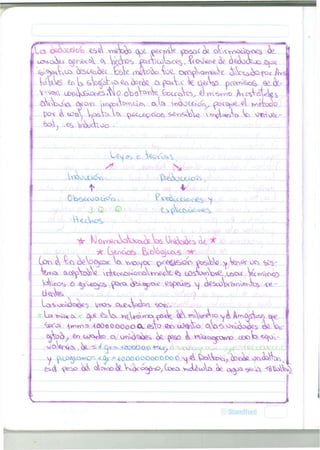 La deducción es el método que permite pasar de afirmaciones de
carácter general a hechos particulares. Proviene de deductio que
significa descender. Este método fue ampliamente utilizado por Aris
tóteles en la silogística en donde a partir de ciertas premisas se de-
rivan conclusiones. No obstante Sócrates, el mismo Aristóteles
atribuía gran importancia a la inducción, porque el método
por el cual, hasta la percepción sensible implanta lo univer-
sal, es inductivo.
Leyes o teorías
Inducción. Deducción.
Observación. Predicciones y
explicaciones
Hechos
* Nomenclatura de las Unidades de *
* Ciencias Biológicas *
Con el fin de lograr la mayor precisión posible y tener un sis-
tema aceptable internacionalmente es costumbre usar términos
latinos o griegos para designar especies y descubrimientos re-
cientes.
Las unidades más aceptadas son:
La micra = que es la milésima parte del milímetro y el Amgstrog que
sería 1mm = 10000000 A, esto en cuanto a las unidades de lo
gitud, en cuanto a unidades de peso el microgramo con la equi-
valencia de 1 gr = 1000000 mcg
y picogramos 1 gr = 1000000000000 y el Daltons, donde un dalton
es el peso del átomo de hidrógeno, (una molécula de agua sería 18 Dalton)
StudeerSnel